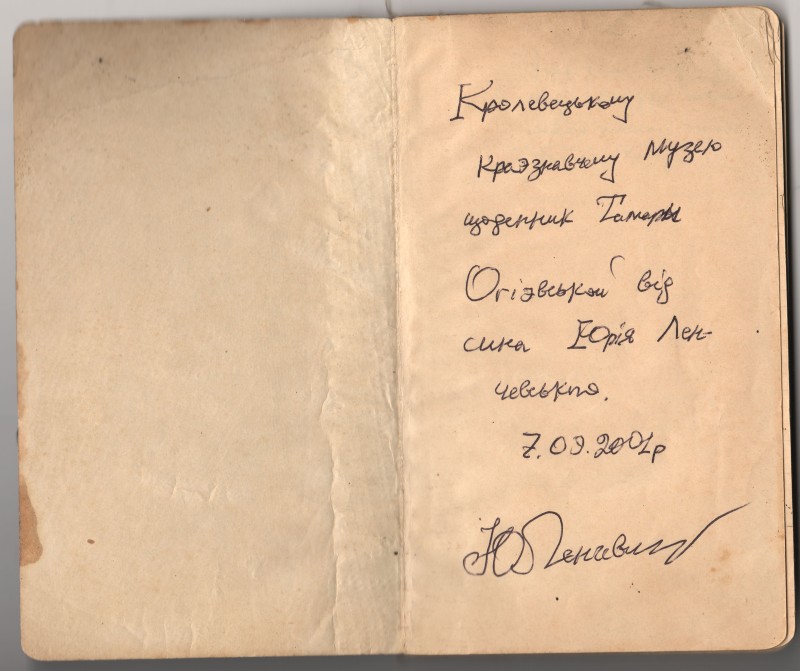 Кролевецькому
Краєзнавчому музею
щоденник Тамари
Огієвської від
сина Юрія Лен-
чевського.
7.09.2001р